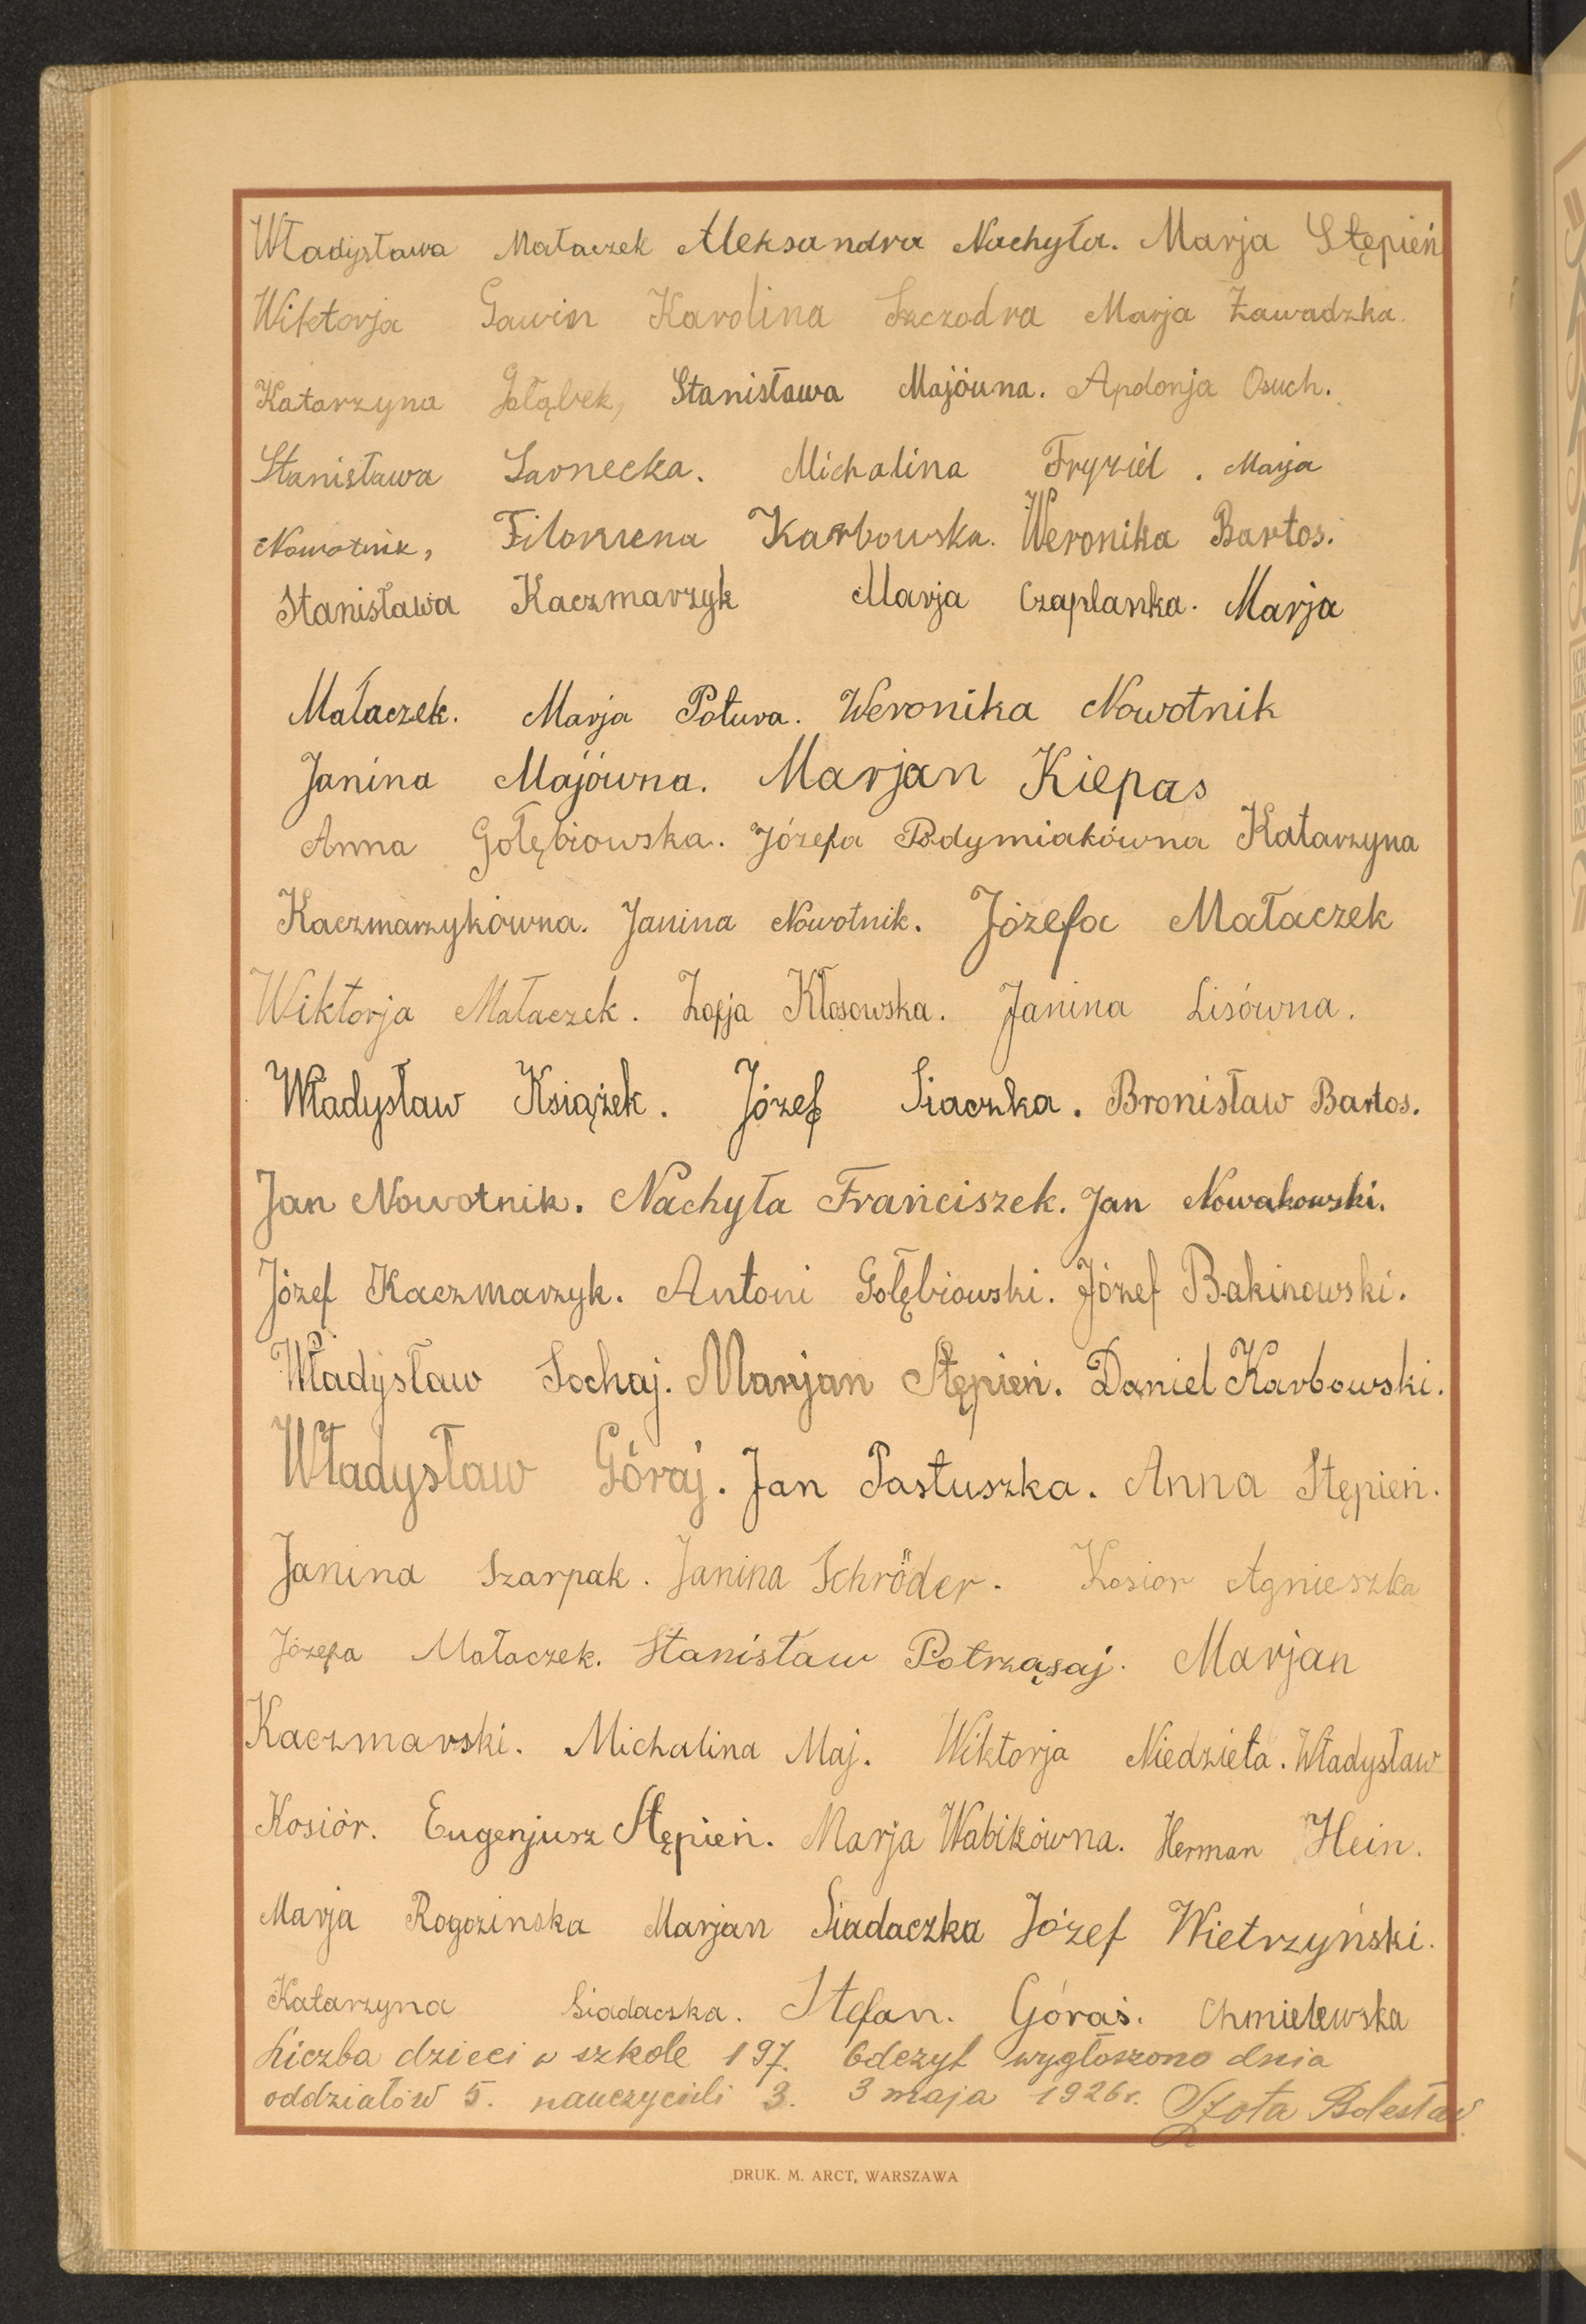 Władysława Małaczek Aleksandra Nachyła. Marja Stępień
Wiktorja Gawin Karolina Szczodra Marja Zawadzka.
Katarzyna Gołąbek, Stanisława Majówna. Apolonja Osuch.
Stanisława Sarnecka. Michalina Fryziel. Marja
Nowotnik, Filomena Karbowska. Weronika Bartos.
Stanisława Kaczmarzyk Marja Czaplanka. Marja
Małaczek. Marja Potura. Weronika Nowotnik
Janina Majówna. Marjan Kiepas
Anna Gołębiowska. Józefa Podymiakówna Katarzyna
Kaczmarzykówna. Janina Nowotnik. Józefa Małaczek
Wiktorja Małaczek. Zofja Kłosowska. Janina Lisówna.
Władysław Książek. Józef Siaczka. Bronisław Bartos.
Jan Nowotnik. Nachyła Franciszek. Jan Nowakowski.
Józef Kaczmarzyk. Antoni Gołębiowski. Józef Bakinowski.
Władysław Sochaj. Marjan Stępień. Daniel Karbowski.
Władysław Góraj. Jan Pastuszka. Anna Stępień.
Janina Szarpak. Janina Schröder. Kosior Agnieszka
Józefa Małaczek. Stanisław Potrząsaj. Marjan
Kaczmarski. Michalina Maj. Wiktorja Niedziela. Władysław
Kosiór. Eugenjusz Stępień. Marja Wabikówna. Herman Hein.
Marja Rogozinska Marjan Siadaczka Józef Wietrzyński.
Katarzyna Siadaczka. Stefan. Góraś. Chmielewska
Liczba dzieci w szkole 197. Odczyt wygłoszono dnia
oddziałów 5. nauczycieli 3. 3 maja 1926 r. Szota Bolesław
DRUK. M. ARCT, WARSZAWA